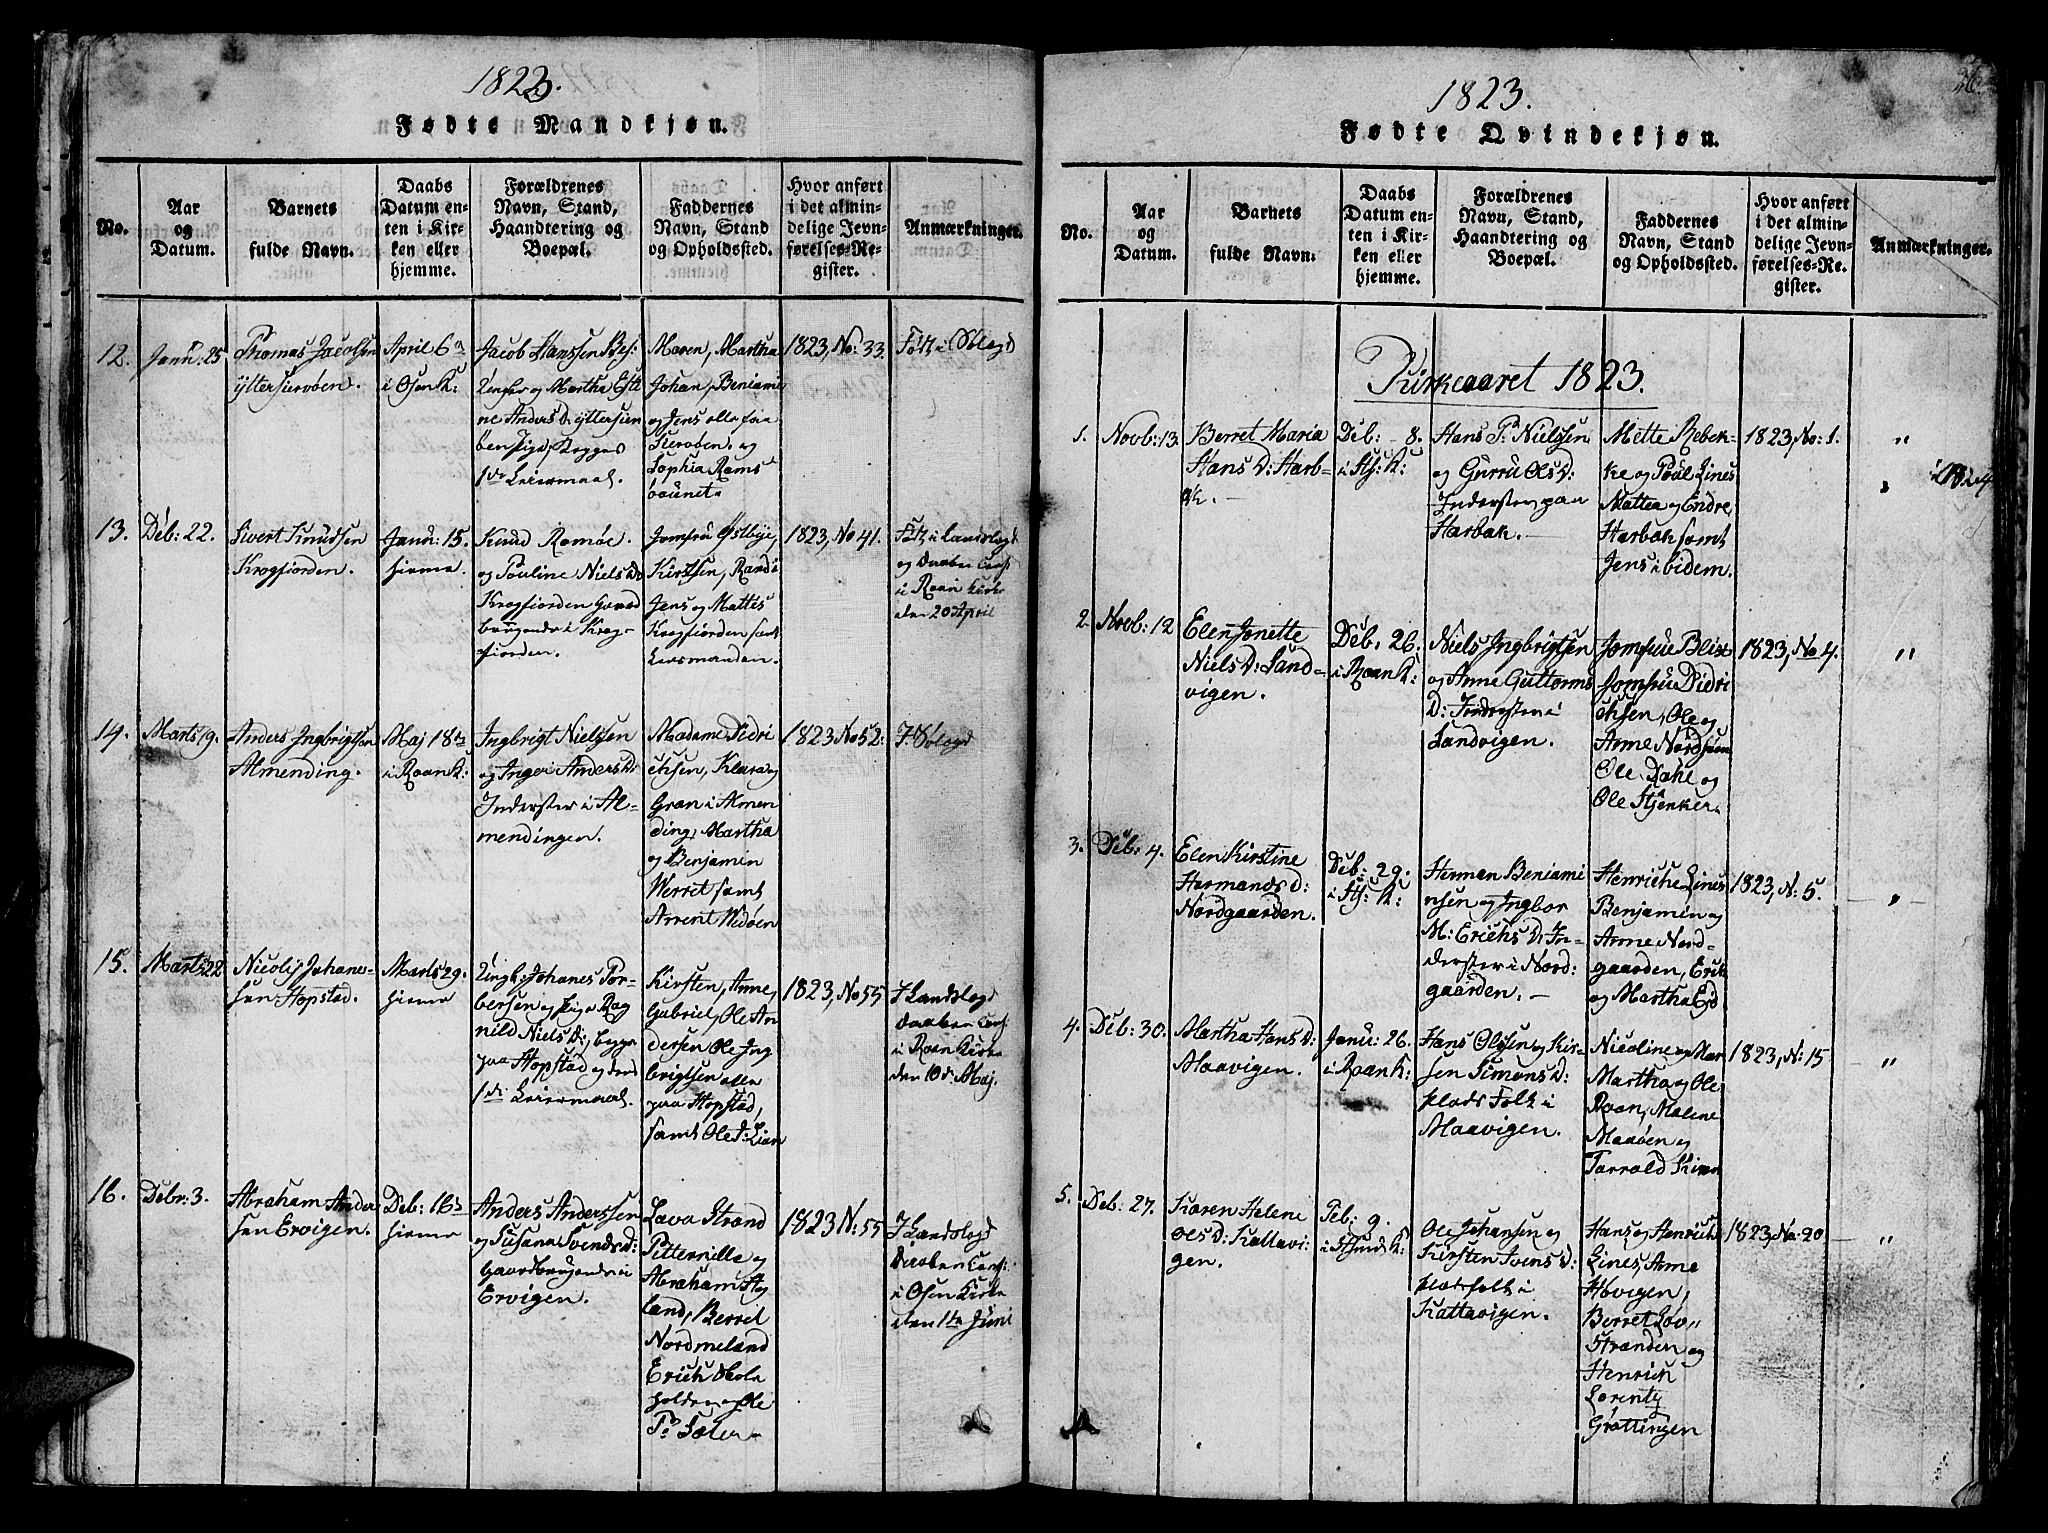 1823.
Fødte Mandkjøn.
No.
Aar
og
Datum.
Barnets
fulde Navn.
Daabs
Datum en-
ten i Kir-
ken eller
hjemme.
Forældrenes
Navn, Stand,
Haandtering og
Boepæl.
Faddernes
Navn, Stand
og Opholdssted.
Hvor anført
i det almin-
delige Jevn-
førelses-Re-
gister.
Anmærkninger.
12.
Janu: 25
Thomas Jacobsen
yttersierøben.
April 6
i Osen K:
Jacob Hanssen
og Martha
Anders D:
Leiermaal.
Maren, Martha
Johan, Benjamin
og Jens alle paa
og
Sophia Rams
1823, No: 33.
13.
Deb: 22.
Sivert Knudsen
Krogfiorden.
Janu: 15.
hiemme.
Knud Ramöe.
og Pauline Niels D:
Krogfiorden Gaard
brugende i Krog-
fiorden.
Jomfru Østbye,
Kirsten, Randi
Jens og Mattis
Krogfiorden samt
Lensmanden.
1823, No 41.
og Daaben
i Roan Kirke
den 20 April
14.
Marts 19.
Anders Ingbrigtsen
Almending.
Maj 18
i Roan K:
Ingbrigt Nielssen
og Inger Anders D:
Inderster i Al-
mendingen.
Madame Didri
chsen, Klara og
Gran i Almen
ding, Martha
og Benjamin
Werret samt
Arrent Wedøen
1823 No 52.
15.
Marts 22
Nicolij Johane-
sen Hopstad.
Marts 29.
hieme
Ungk: Johanes Tor-
bersen og Pige Rag
nild Niels D:, begge
paa Hopstad og deres
1 Leiermaal.
Kirsten, Anne,
Gabriel, Ole An
dersen Ole Ing
brigtsen alle
paa Hopstad,
samt Ole Lian
1823, No 55
I Landslagd
Daaben
i Roan Kirke
den 10 Maj.
16.
Debr: 3.
Abraham Ander
sen Ervigen.
Deb: 16
hieme
Anders Anderssen
og Susana Svends D:
Gaardbrugende i
Ervigen.
Lava Strand
Pitternille og
Abraham
land, Berret
Nordmeland
Erich
og Ole
Sæter
1823 N: 55
Daaben
i Osen Kirke
den 1 Juni
1823.
Fødte Qvindekjøn.
No.
Aar
og
Datum.
Barnets
fulde Navn.
Daabs
Datum en-
ten i Kir-
ken eller
hjemme.
Forældrenes
Navn, Stand,
Haandtering og
Boepæl.
Faddernes
Navn, Stand
og Opholdssted.
Hvor anført
i det almin-
delige Jevn-
førelses-Re-
gister.
Anmærkninger.
Kirkeaaret 1823.
1.
Novb: 13
Berret Maria
Hans D: Harb-
ak.
Deb: 8.
i Stj: K:
Hans P: Nielssen
og Gurru Ols D:
Inderster paa
Harbak.
Mette Rebek-
ke og Poul Lines
Mattea og Endre
Harbak samt
Jens ibidem.
1823, No: 1.
"
1824
2.
Novb: 12
Elen Jonette
Niels D: Sand-
vigen.
Deb: 26.
i Roan K:
Niels Ingbrigtsen
og Anne Guttorms
D: Inderster i
Sandvigen.
Jomfrue Blix
Jomfrue Didri
chsen, Ole og
Anne
Ole Dahl og
Ole
1823, No 4.
"
3.
Deb: 4.
Elen Kirstine
Hermands D:
Nordgaarden.
Deb: 29.
i Stj: K:
Herman Benjami
nsen og Ingbor
M: Erichs D: In-
derster i Nord:
gaarden.
Henriche Lines
Benjamin og
Anne Nord-
gaarden, Erik
og Martha Eid
1823, N: 5.
4.
Deb: 30.
Martha Hans D:
Maavigen.
Janu: 26.
i Roan K:
Hans Olsen og Kir-
sten Simons D:
plads Folk i
Maavigen.
Nicoline og Mar
Martha og Ole
Roan, Malene
Maaøen og
Tarrald
1823, N: 15
"
5.
Deb: 27.
Karen Helene
Ols D: Kattavi-
gen.
Feb: 9.
Ole Johansen og
Kirsten Ivens D:
pladsfolk i
Kattavigen.
Hans og Henriche
Lines, Arne
Høvigen,
Berret Lov
Stranden og
Henrich
Lorentz
Grøttingen
1823, No: 20
"